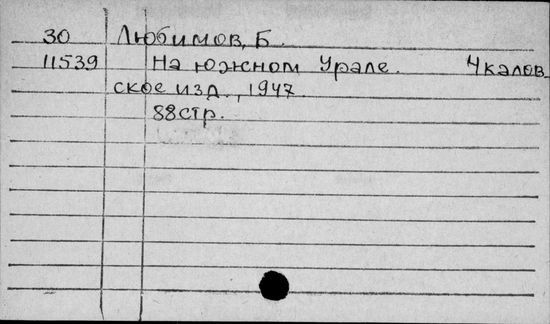 30 Любимов, Б.
11539 На южном Урале. Чкалов
ское изд., 1947
88стр.